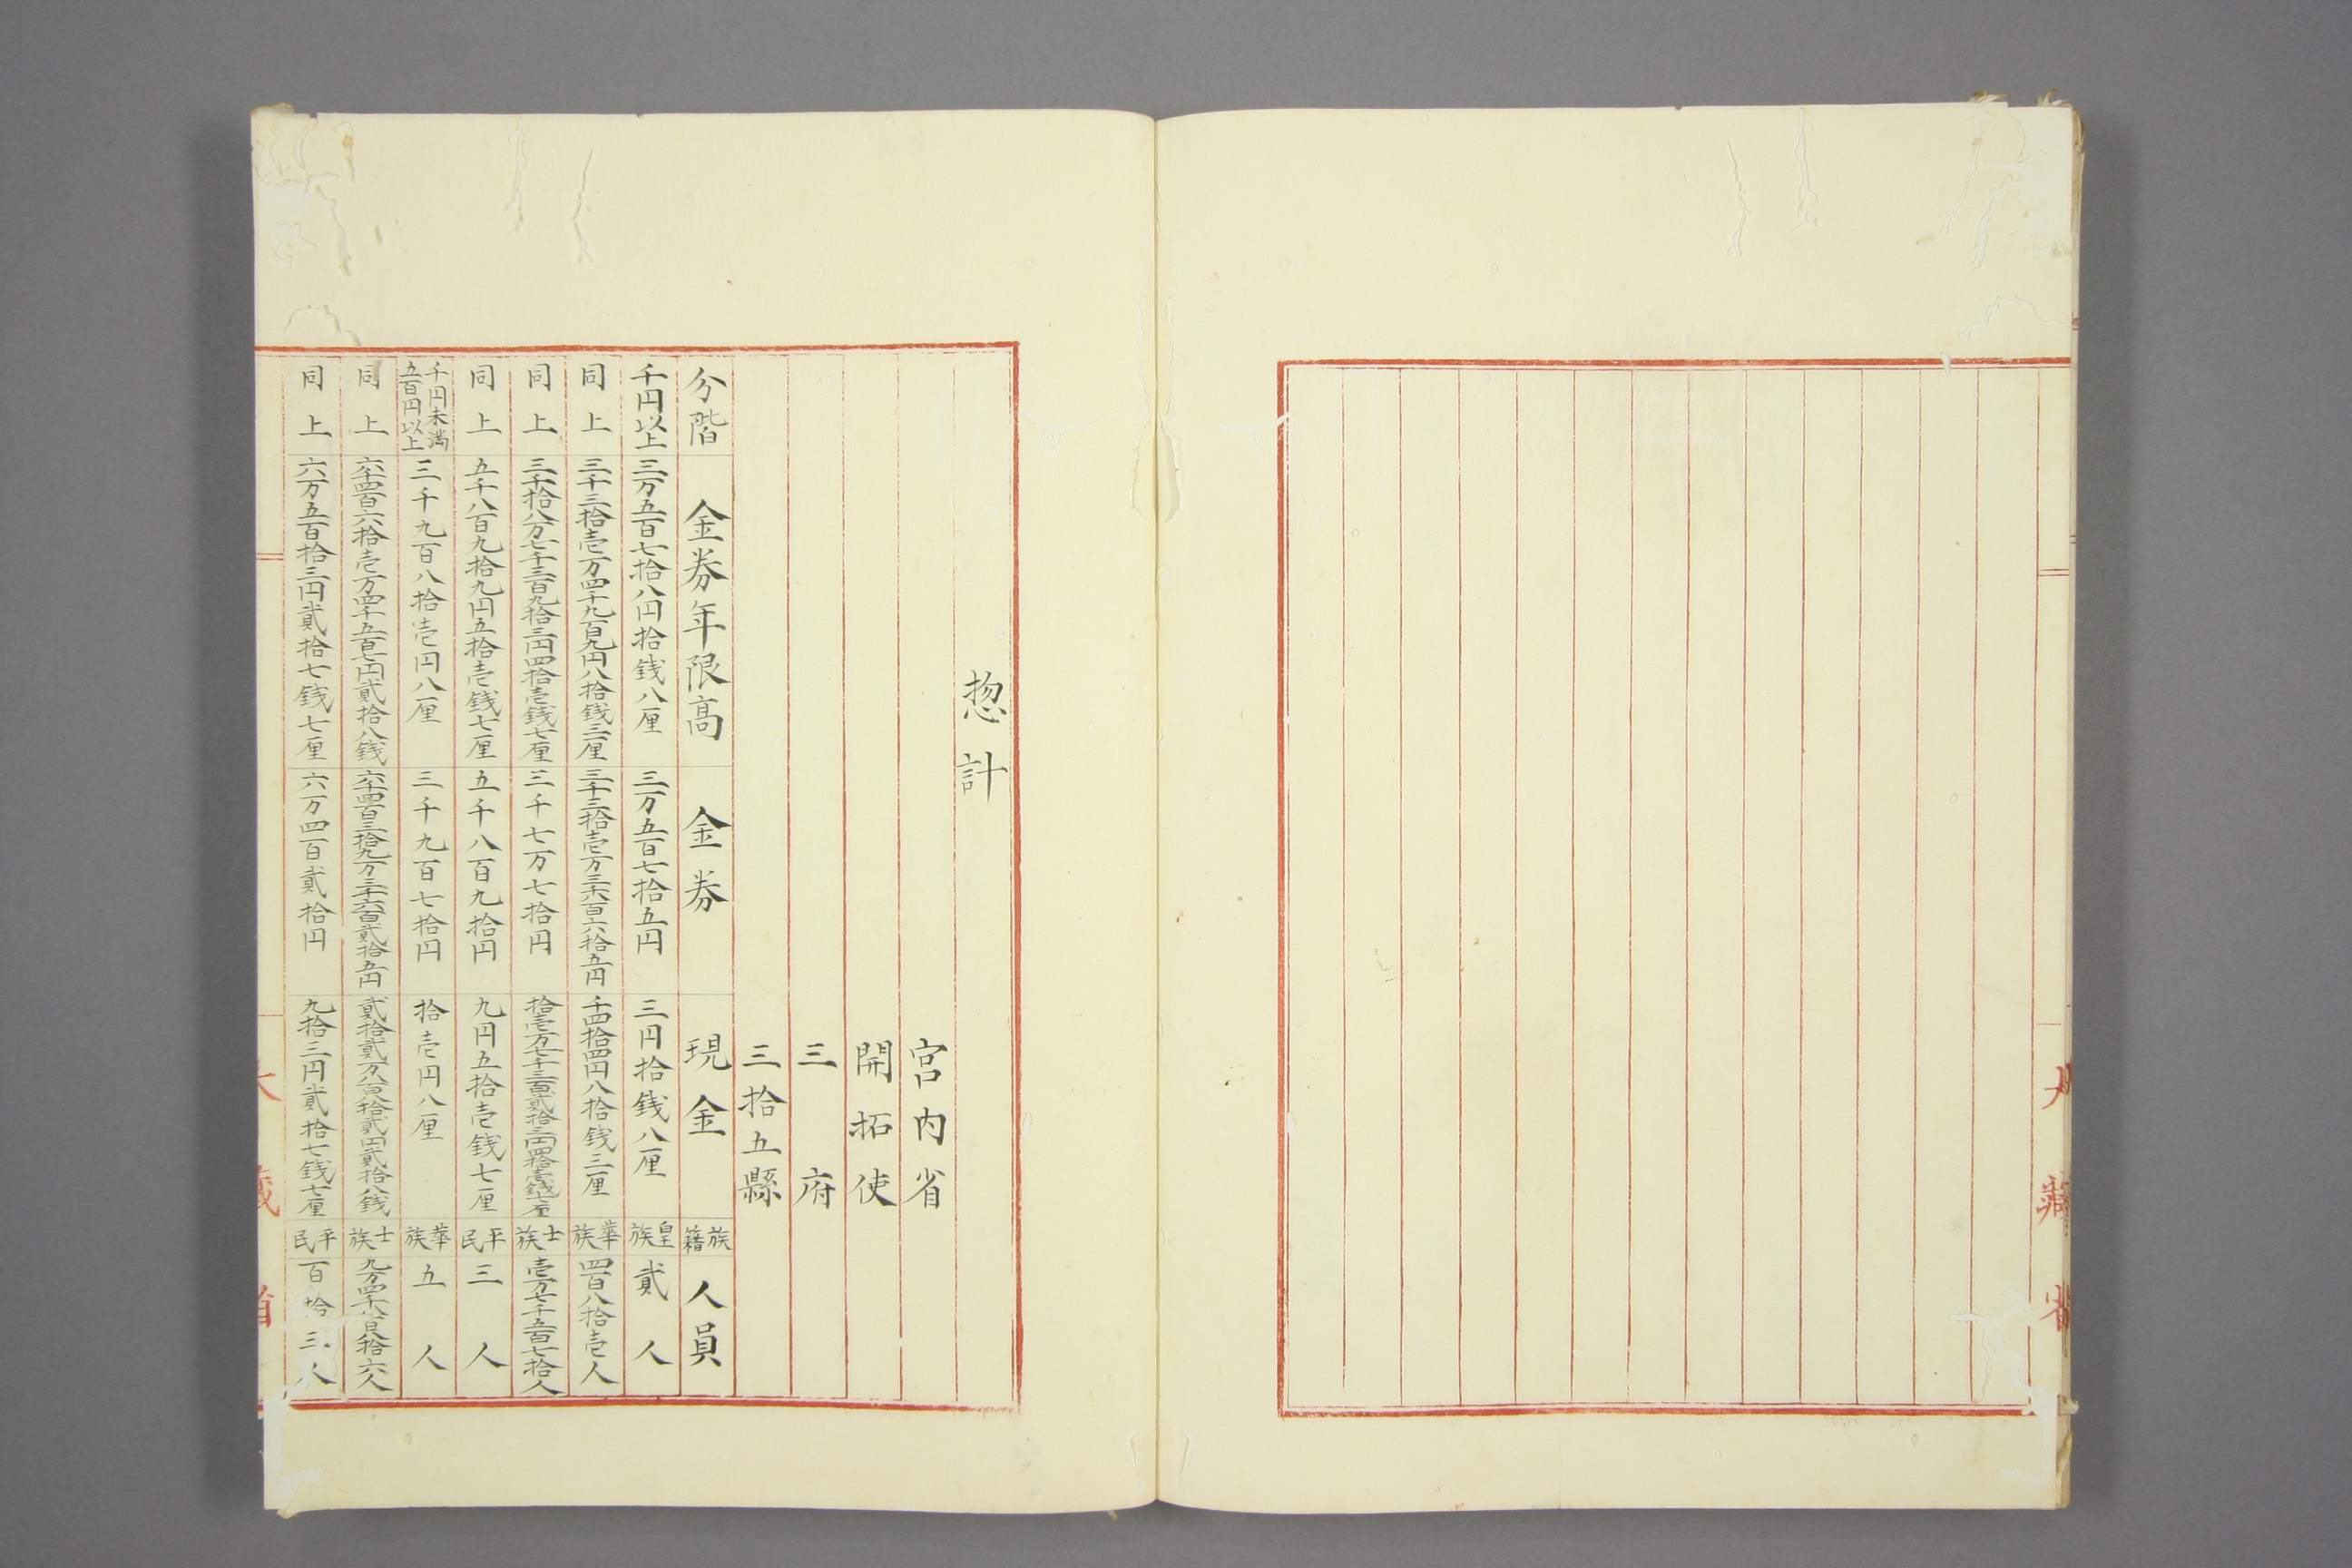 大藏省
惣計
宮内省
開拓使
三府
三拾五縣
分階 金券年限高 金券 現金 族籍 人員
千円以上 三万五百七拾八円拾銭八厘 三万五百七拾五円 三円拾銭八厘 皇族 貳人
同上 三千三拾壱万四千九百九円八拾銭三厘 三千三拾壱万三千八百六拾五円 千四拾四円八拾銭三厘 華族 四百八拾壱人
同上 三千拾八万七千三百九拾三円四拾壱銭七厘 三千七万七拾円 拾壱万七千三百貳拾三円四拾壱銭七厘 士族 壱万七千五百七拾人
同上 五千八百九拾九円五拾壱銭七厘 五千八百九拾円 九円五拾壱銭七厘 平民 三人
千円未満五百円以上 三千九百八拾壱円八厘 三千九百七拾円 拾壱円八厘 華族 五人
同上 六千四百六拾壱万四千五百七円貳拾八銭 六千四百三拾九万三千六百貳拾五円 貳拾貳万八百八拾貳円貳拾八銭 士族 九万四千八百八拾六人
同上 六万五百拾三円貳拾七銭七厘 六万四百貳拾円 九拾三円貳拾七銭七厘 平民 百拾三人
大藏省